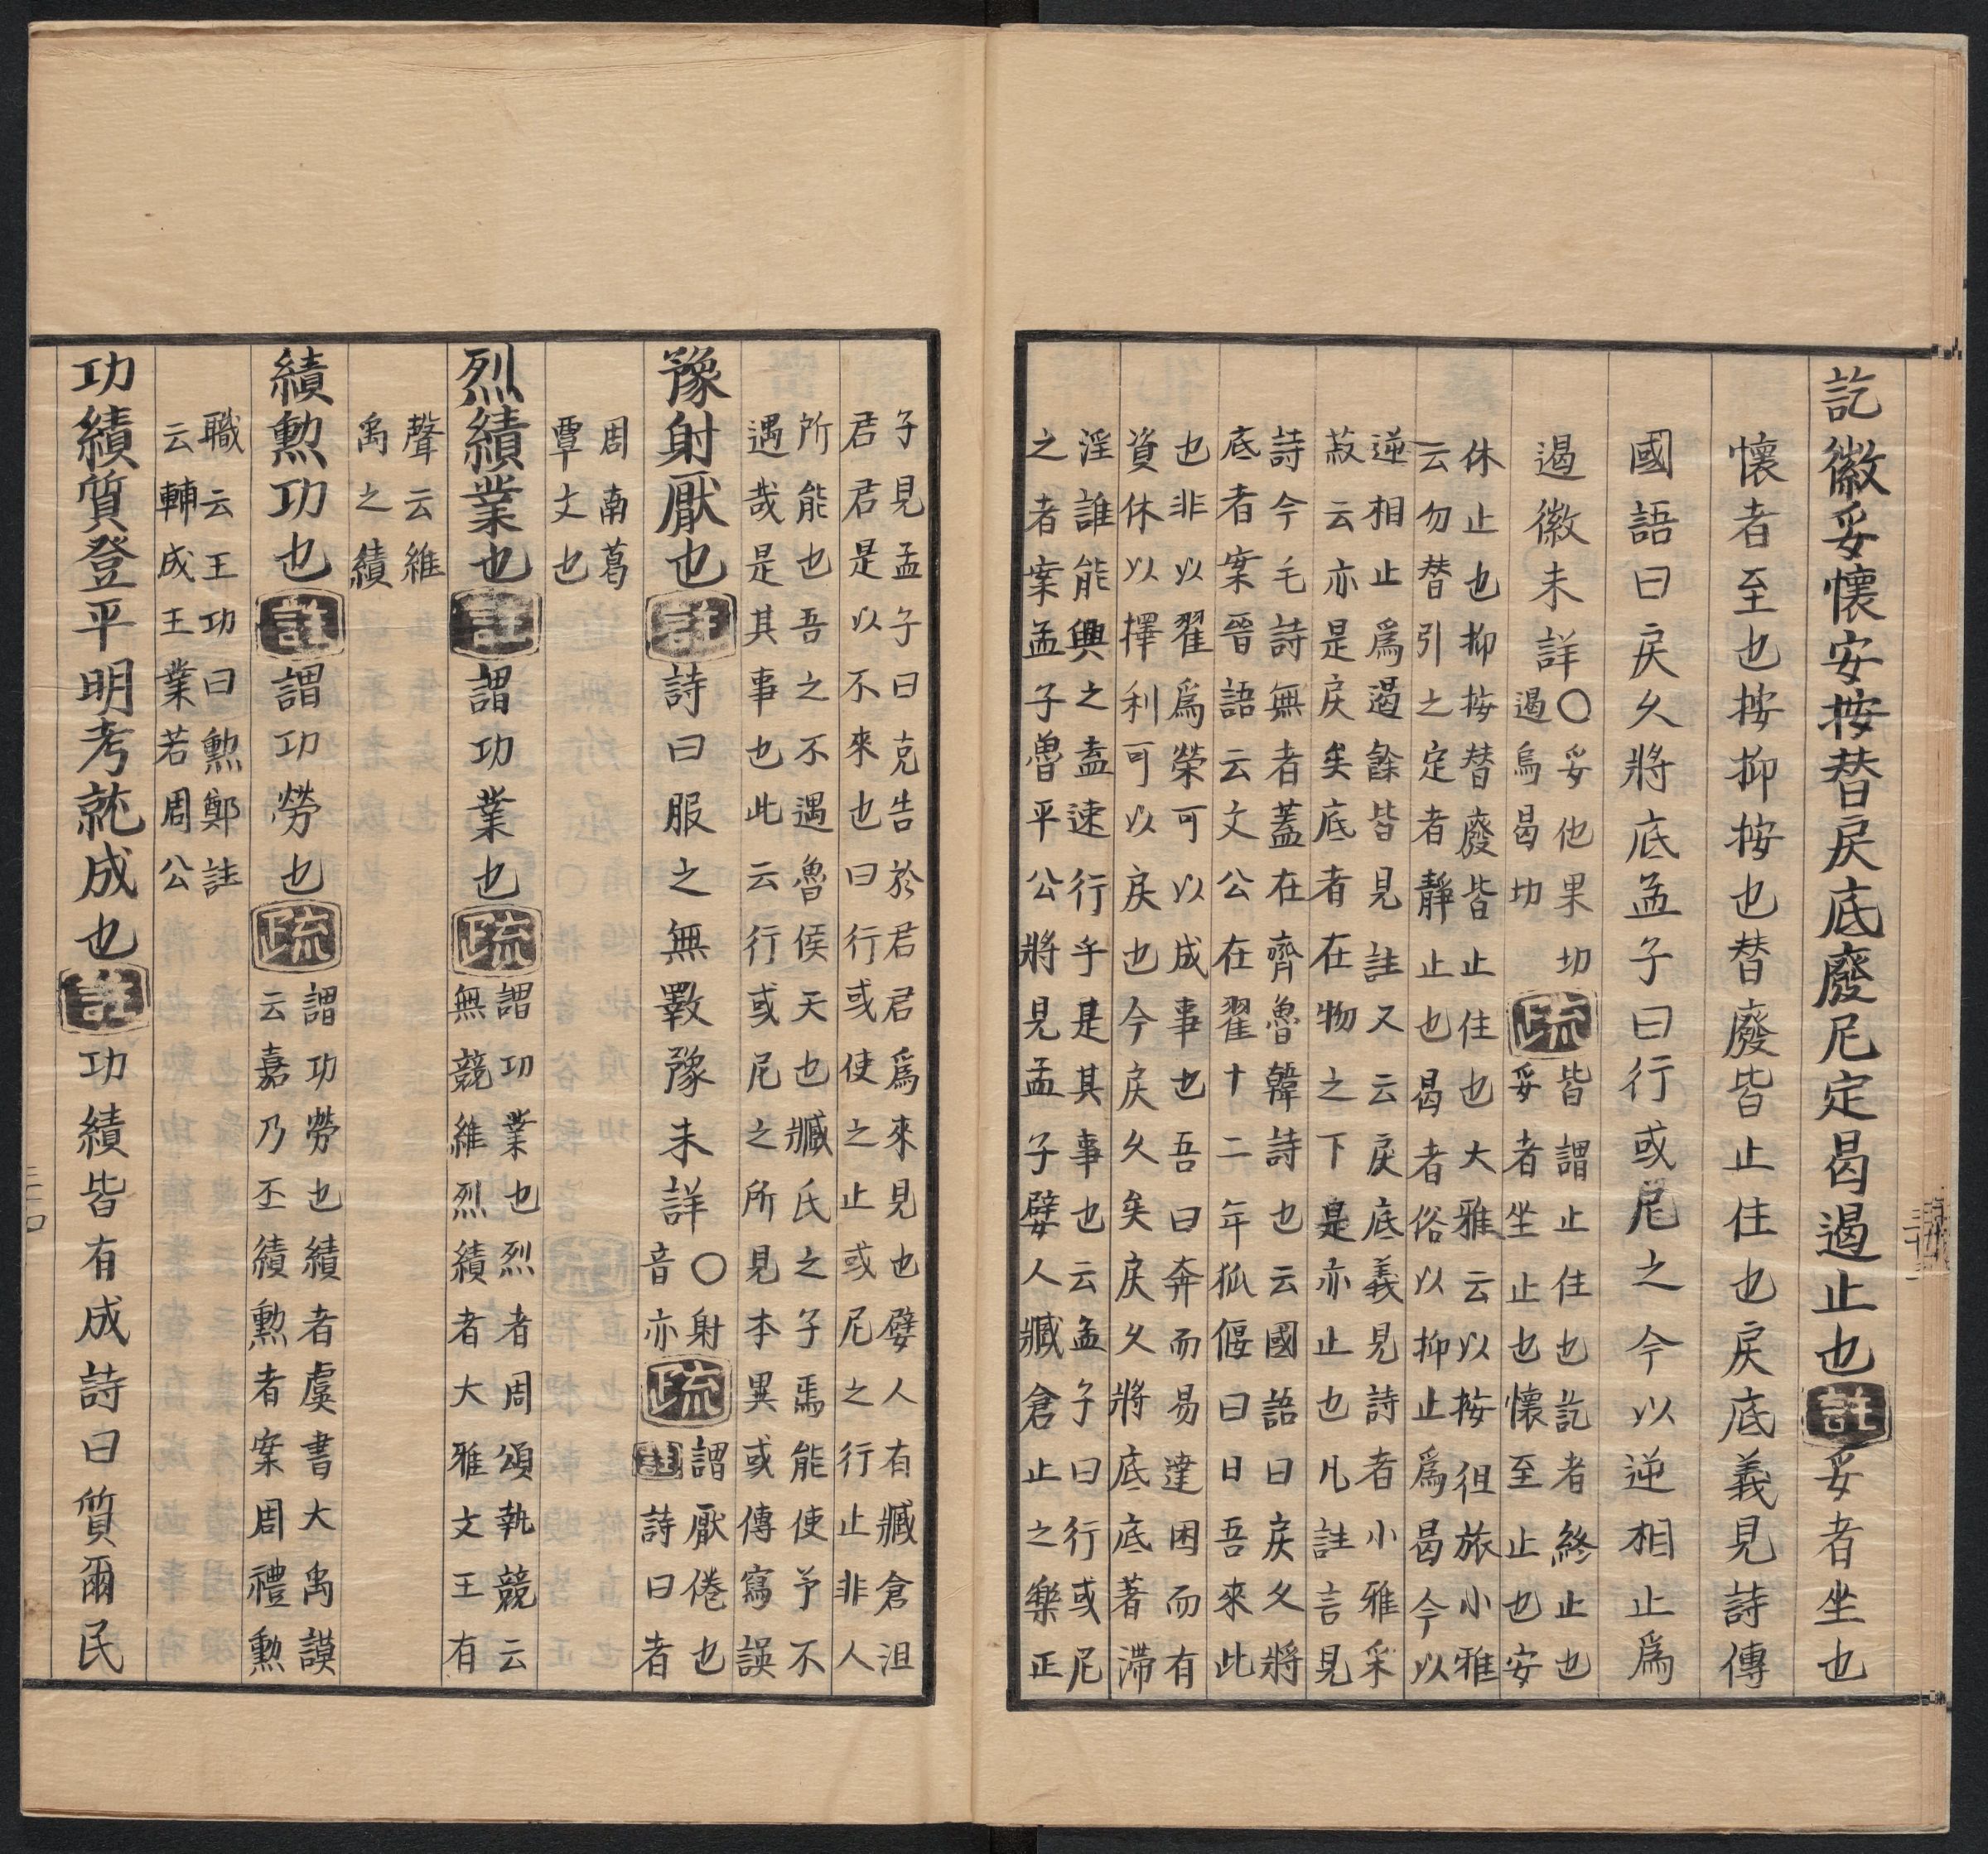 訖徽妥懷安按替戾底廢尼定曷遏止也註妥者坐也
懷者至也按抑按也替廢皆止住也戾底義見詩傳
國語曰戾久將底孟子曰行或尼之今以逆相止爲
遏徽未詳○妥他果切
遏烏曷切
疏皆謂止住也訖者終止也
妥者坐止也懷至止也安
休止也抑按替廢皆止住也大雅云以按徂旅小雅
云勿替引之定者靜止也曷者俗以抑止爲曷今以
逆相止爲遏餘皆見註又云戾底義見詩者小雅采
菽云亦是戾矣底者在物之下是亦止也凡註言見
詩今毛詩無者蓋在齊魯韓詩也云國語曰戾久將
底者案晉語云文公在翟十二年狐偃曰日吾來此
也非以翟爲榮可以成事也吾曰奔而易達困而有
資休以擇利可以戾也今戾久矣戾久將底底著滯
淫誰能興之盍速行乎是其事也云孟子曰行或尼
之者案孟子魯平公將見孟子嬖人臧倉止之樂正
子見孟子曰克告於君君爲來見也嬖人有臧倉沮
君君是以不來也曰行或使之止或尼之行止非人
所能也吾之不遇魯侯天也臧氏之子焉能使予不
遇哉是其事也此云行或尼之所見本異或傳寫誤
豫射厭也註詩曰服之無斁豫未詳○射
音亦
疏謂厭倦也
註詩曰者
周南葛
覃文也
烈績業也註謂功業也疏謂功業也烈者周頌執競云
無競維烈績者大雅文王有
聲云維
禹之績
績勳功也註謂功勞也疏謂功勞也績者虞書大禹謨
云嘉乃丕績勳者案周禮勳
職云王功曰勳鄭註
云輔成王業若周公
功績質登平明考就成也註功績皆有成詩曰質爾民